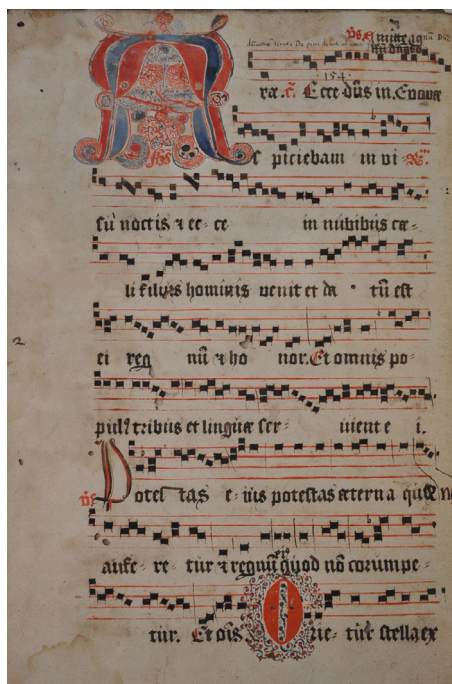 v̄s. Emitte agnū Dn̄e
154.
ræ. c̄. Ecce dūs in. Evovæ
Aspiciebam in vi-
sū noctis & ec-ce in nubibus cæ-
li filius hominis venit et da-tū est
ei reg nū & ho nor. Et omnis po-
pul9 tribus et linguæ ser-uient e i.
v̄s Potestas e-ius potestas æterna quæ n
aufe-re-tur & regnū eius quod nō corumpe-
tur. Et oīs. Orie-tur stella ex